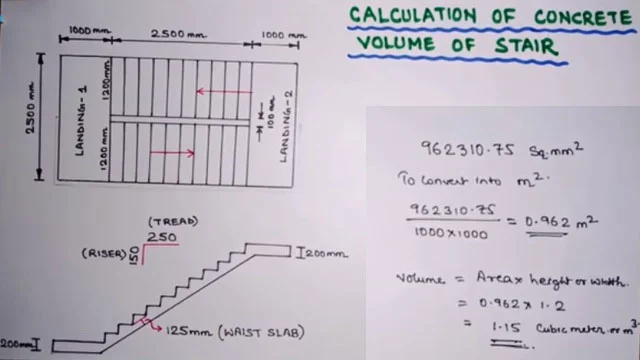 CALCULATION OF CONCRETE
VOLUME OF STAIR
1000mm
2500mm
1000mm
2500mm
LANDING-1
1200mm
1200mm
100mm
LANDING-2
(TREAD)
250
(RISER)
150
200mm
125mm (WAIST SLAB)
200mm
962310.75 Sq.mm²
To Convert into m².
962310.75
1000x1000
= 0.962 m²
Volume = Area x height or width.
= 0.962 x 1.2
= 1.15 Cubic meter or m³